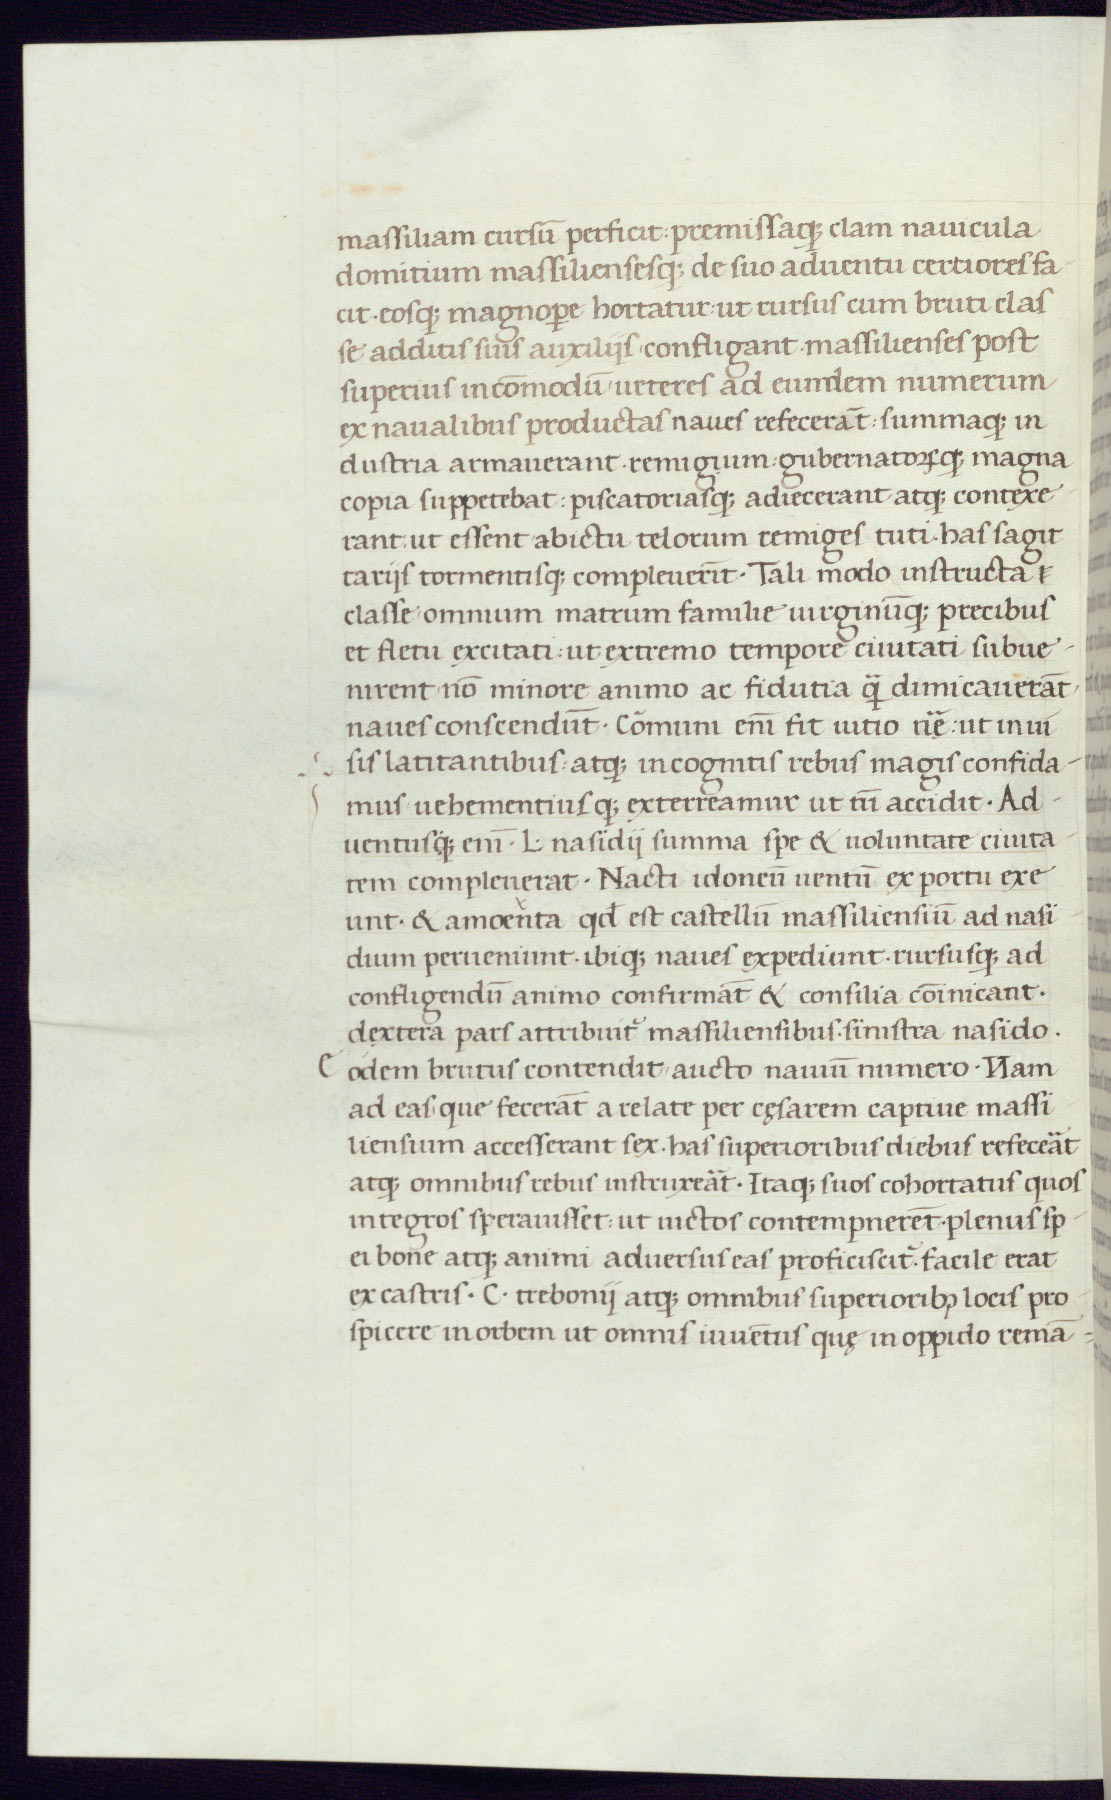 massiliam cursū perficit: premissaq; clam nauicula
domitium massiliensesq; de suo aduentu certiores fa-
cit. eosq; magnopere hortatur: ut rursus cum bruti clas
se additis suis auxilijs confligant. massilienses post
superius incōmodū ueteres ad eumdem numerum
ex naualibus productas naues refecerāt: summaq; in
dustria armauerant. remigium: gubernatorꝫq; magna
copia suppetebat: piscatoriasq; adiecerant atq; contexe-
rant. ut essent abictu telorum remiges tuti. has sagit
tarijs tormentisq; compleuerīt. Tali modo instructa
classe omnium matrum familie uirginūq; precibus
et fletu excitati: ut extremo tempore ciuitati subue-
nirent nō minore animo ac fidutia q̄ dimicauerāt,
naues conscendūt. Cōmuni enī fit uitio nr̄ę: ut in ui
sis latitantibus: atq; incognitis rebus magis confida-
mus uehementiusq; exterreamur ut tū accidit. Ad-
uentusq; enī. L. nasidij summa spe & uoluntate ciuita-
tem compleuerat. Nacti idoneū uentū ex portu exe
unt. & amoenta qd̄ est castellū massiliensiū ad nasi-
dium perueniunt. ibiq; naues expediunt. rursusq; ad
confligendū animo confirmāt & consilia cōīnicant.
dextera pars attribuit᷑ massiliensibus. sinistra nasido.
E odem brutus contendit aucto nauiū numero. Nam
ad eas que fecerāt arelate per cęsarem captiue massi-
liensium accesserant sex. has superioribus diebus refeceāt
atq; omnibus rebus instruxeāt. Itaq; suos cohortatus quos
integros sperauisset: ut uictos contempnerēt. plenus sp-
ei bone atq; animi aduersus eas proficiscit᷑. facile erat
ex castris. C. trebonij atq; omnibus superiorib; locis pro-
spicere in orbem ut omnis iuuētus quę in oppido remā=